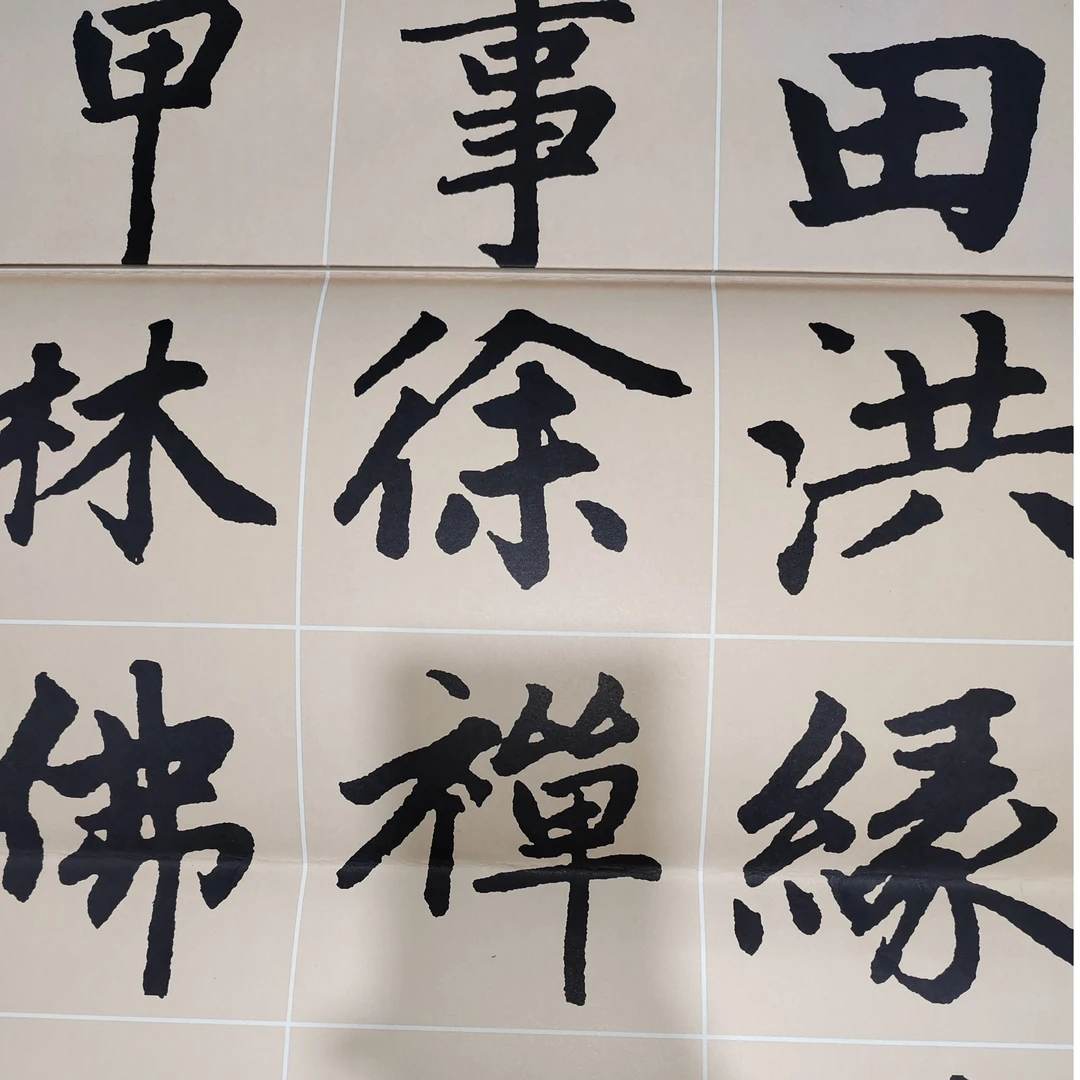 甲事田
林徐洪
佛禅縁